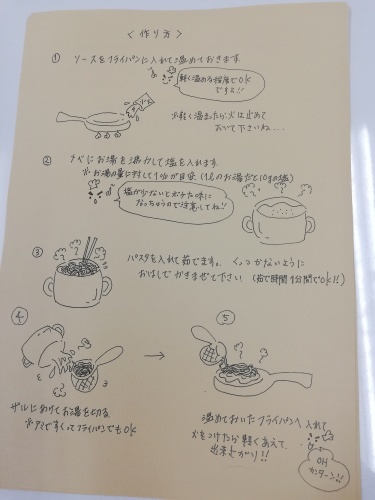 ＜作り方＞
① ソースをフライパンに入れて温めておきます
軽く温める程度でOK
ですよ!!
※軽く温まったら火は止めて
おいて下さいね…
② ナベにお湯を沸かして塩を入れます。
※お湯の量に対して1%が目安（1Lのお湯だと10gの塩）
塩が少ないとボケた味に
なっちゃうので注意してね!!
③ パスタを入れて茹でます。くっつかないように
おはしでかきまぜて下さい（茹で時間1分間でOK!!）
④
ザルにあけてお湯を切る
※アミですくってフライパンでもOK
⑤
温めておいたフライパンへ入れて
火をつけたら軽くあえて
出来上がり!!
OH
カンターン!!